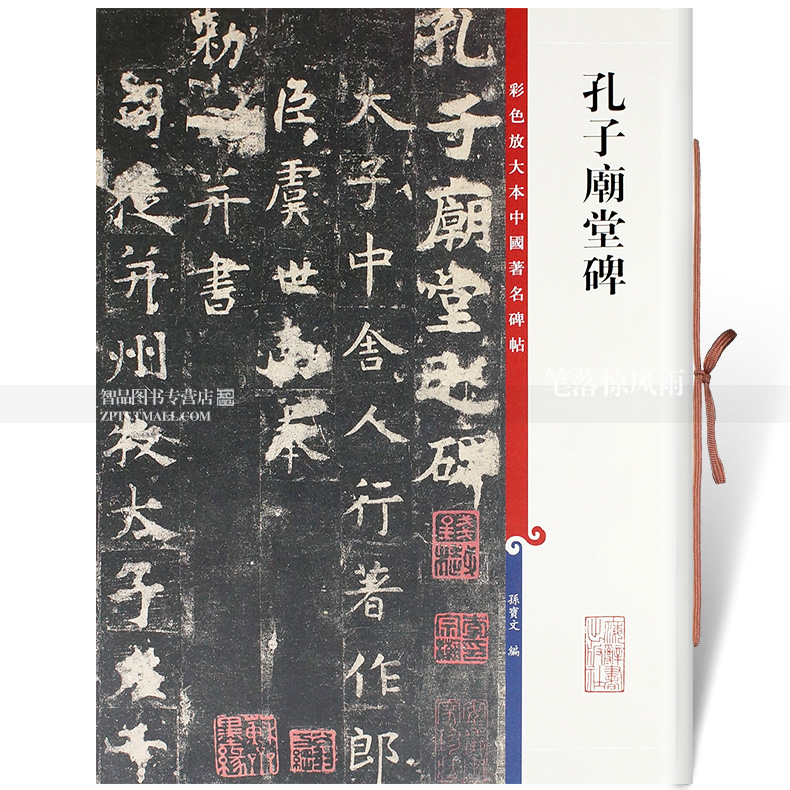 孔子廟堂碑
彩色放大本中國著名碑帖
孫寶文 編
孔子廟堂之碑
太子中舍人行著作郎
臣虞世南奉
勅撰并書
司徒并州牧太子左千
智品图书专营店
ZPTS.TMALL.COM
笔落惊风雨